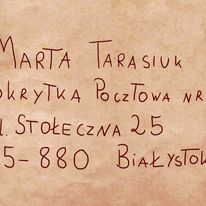 MARTA TARASIUK
OKRYTKA POCZTOWA NR
L. STOŁECZNA 25
5-880 BIAŁYSTOK